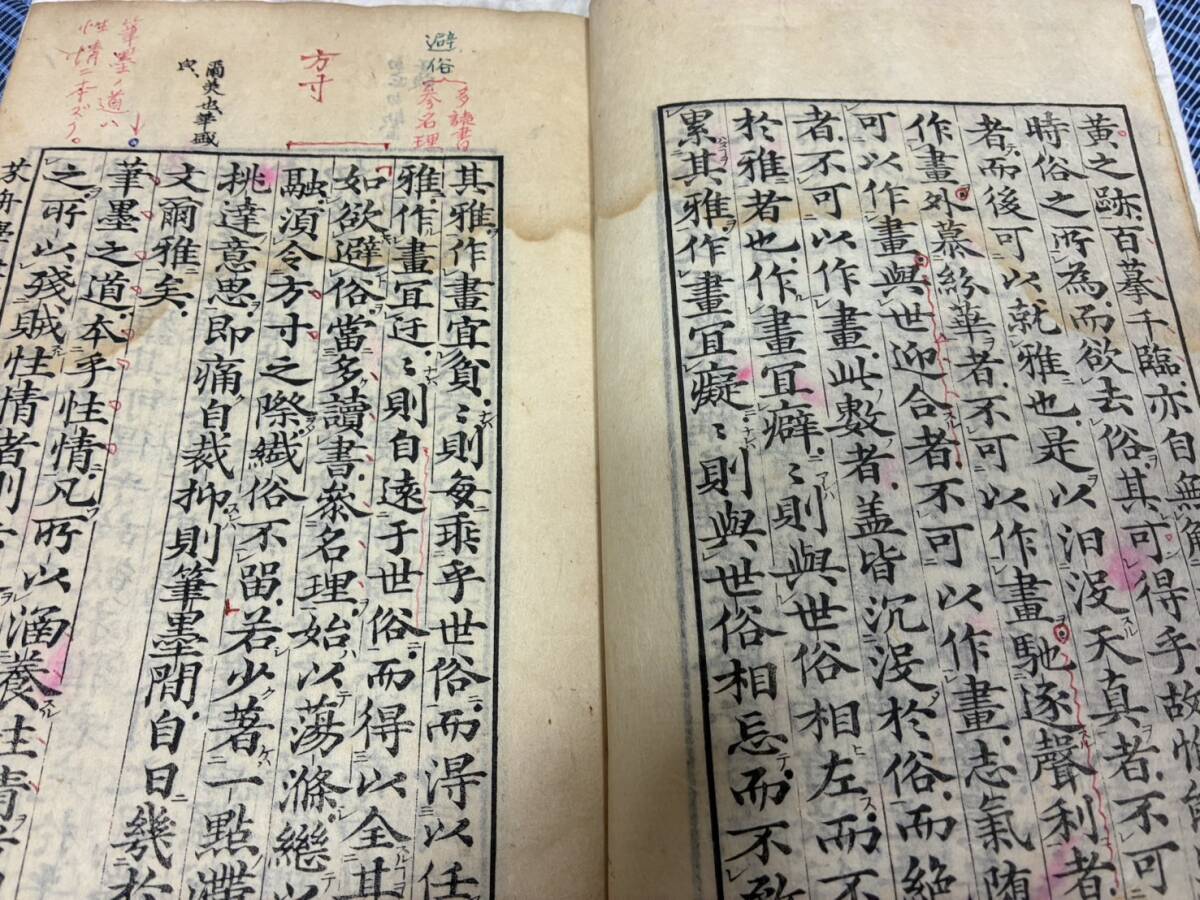 黄之跡.百摹千臨.亦自無
時俗之所為.而欲去俗.其可得乎.故
者.而後可以就雅也.是以汩没天真者.不可
作畫.外慕紛華者.不可以作畫.馳逐聲利者.
可以作畫.與世迎合者.不可以作畫.志氣堕
者.不可以作畫.此數者.盖皆沉没於俗.而絶
於雅者也.作畫宜癖.〻則與世俗相左.而不
累其雅.作畫宜癡.〻則與世俗相忘.而不
其雅.作畫宜貧.〻則每乖乎世俗.而得以任
雅.作畫宜迂.〻則自遠于世俗.而得以全其
如欲避俗.當多讀書.叅名理.始以蕩滌.繼以
融.須令方寸之際.纎俗不留.若少著一點滯
挑達意思.即痛自裁抑.則筆墨間.自日幾於
文爾雅矣.
筆墨之道.本乎性情.凡所以涵養性情
之.所以殘賊性情者.則
芥舟學
避俗
多讀書
參名理
方寸
爾美也華盛
皃
筆墨ノ道ハ
性情ニ本ズク。